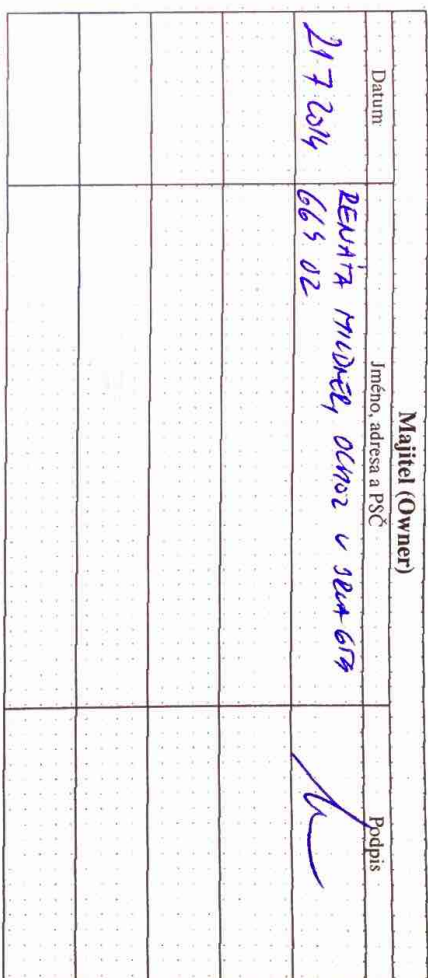 Majitel (Owner)
Datum Jméno, adresa a PSČ Podpis
21.7.2014 RENATA MILDNER, OCHOZ U
664 02